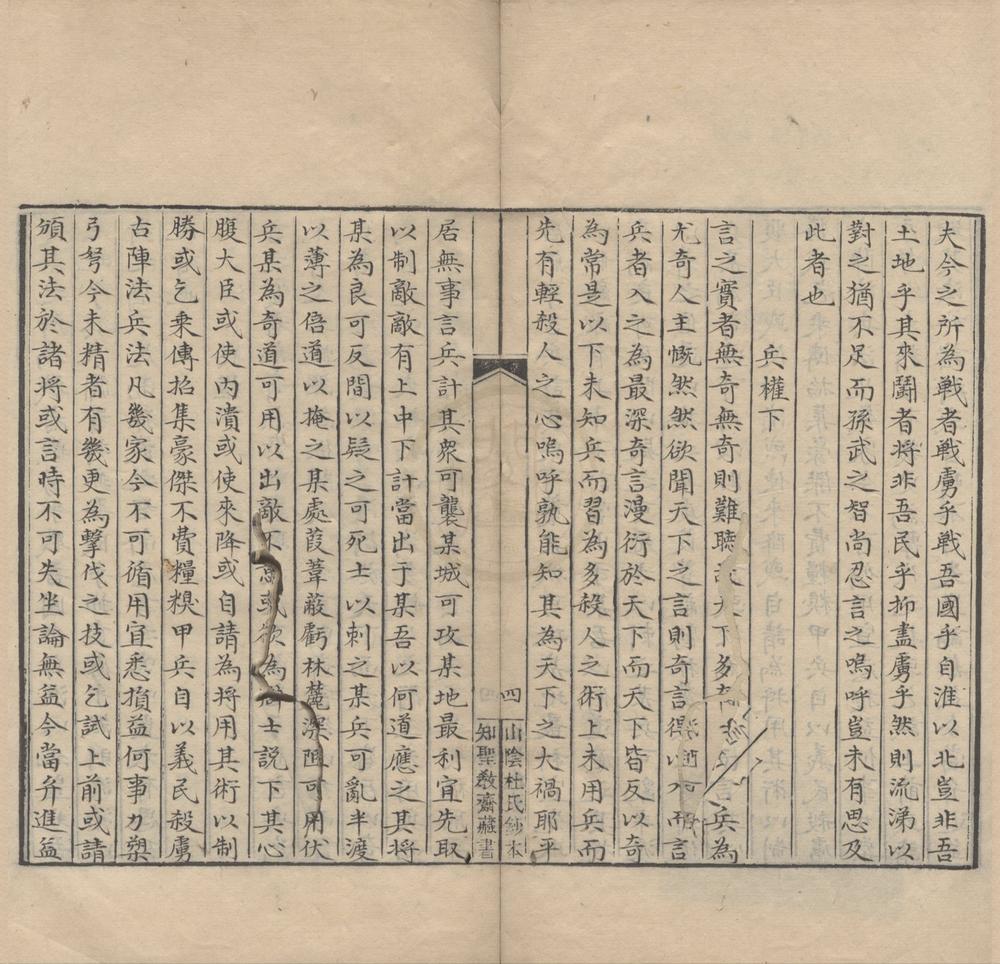 夫今之所為戰者戰虜乎戰吾國乎自淮以北豈非吾
土地乎其來鬭者將非吾民乎抑盡虜乎然則流涕以
對之猶不足而孫武之智尚忍言之嗚呼豈未有思及
此者也
兵權下
言之實者無奇無奇則難聽 天下多 兵為
尤奇人主慨然然欲聞天下之言則奇言得 以 而言
兵者入之為最深奇言漫衍於天下而天下皆反以奇
為常是以下未知兵而習為多殺人之術上未用兵而
先有輕殺人之心嗚呼孰能知其為天下之大禍耶平
四
山陰杜氏鈔本
知聖教齋藏書
居無事言兵計其衆可襲某城可攻某地最利宜先取
以制敵敵有上中下計當出于某吾以何道應之其將
某為良可反間以疑之可死士以刺之某兵可亂半渡
以薄之倍道以掩之某處葭葦蔽虧林麓深阻可用伏
兵某為奇道可用以出敵不 為 士説下其心
腹大臣或使內潰或使來降或自請為將用其術以制
勝或乞乘傳招集豪傑不費糧糗甲兵自以義民殺虜
古陣法兵法凡幾家今不可循用宜悉損益何事刀槊
弓弩今未精者有幾更為擊伐之技或乞試上前或請
頒其法於諸將或言時不可失坐論無益今當并進益